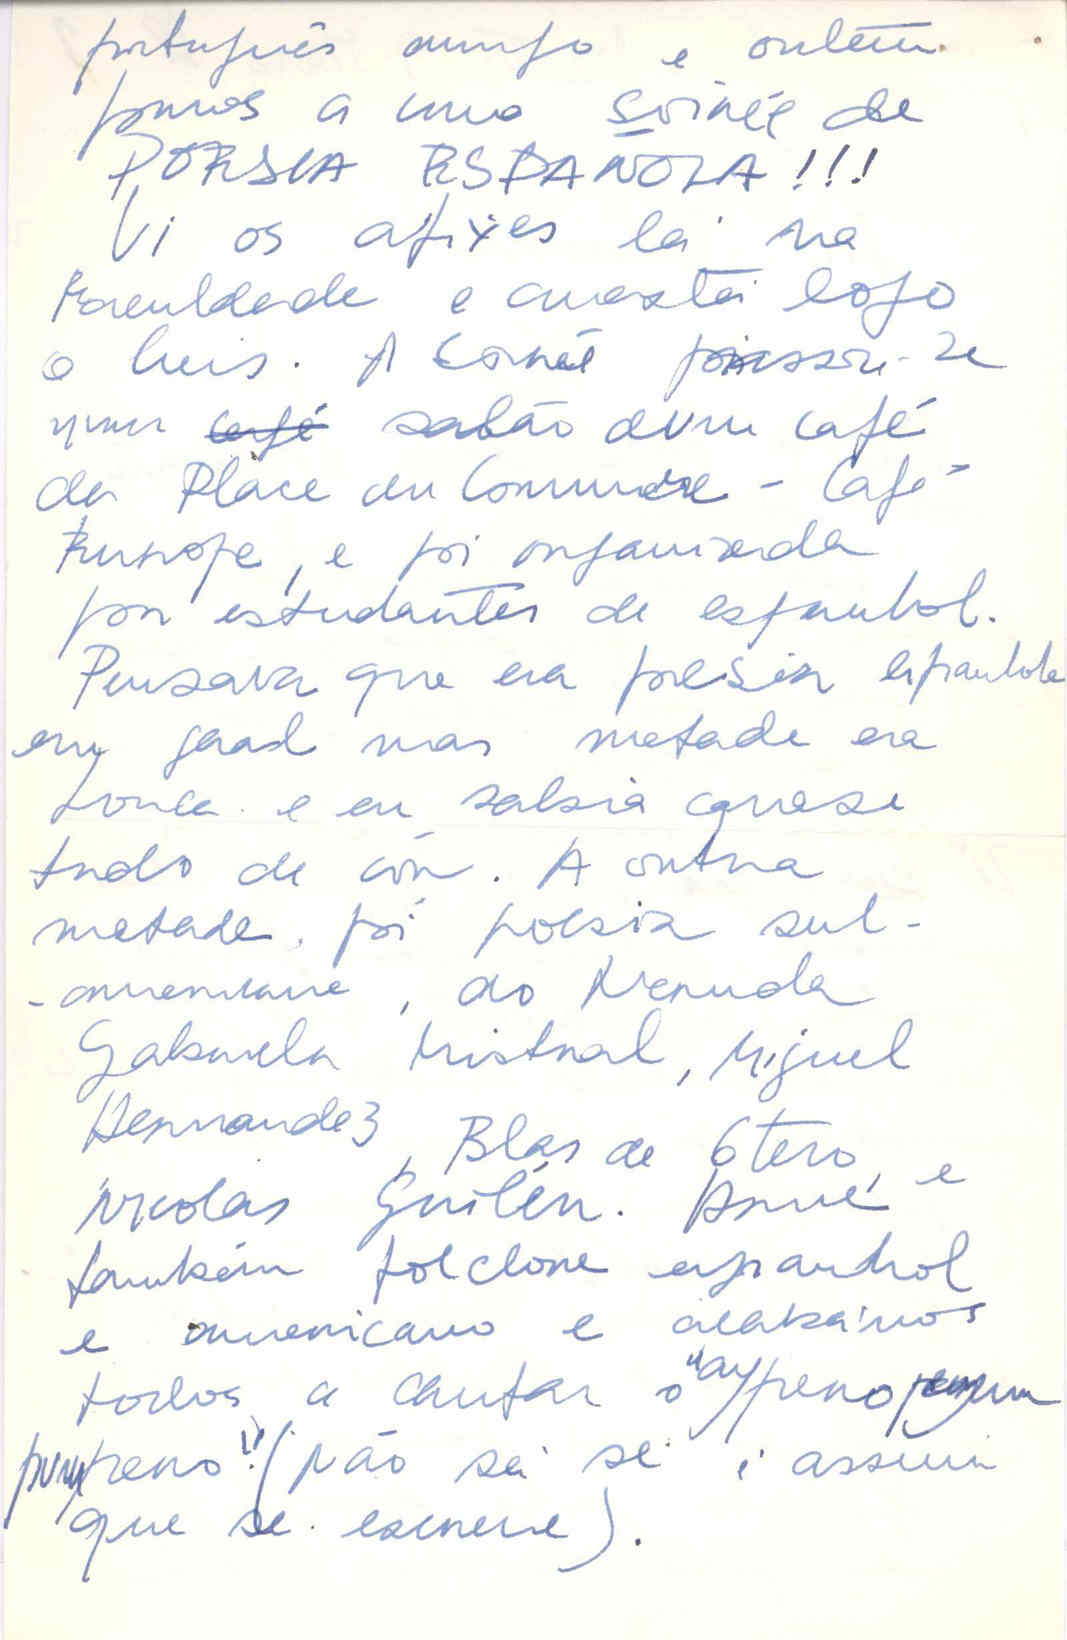 português amigo e ontem
fomos a uma soirée de
POESIA ESPAÑOLA!!!
Vi os afixes lá na
Faculdade e arrastei logo
o Luis. A soirée passou-se
num café salão dum café
da Place du Commerce - Café
Europe, e foi organizada
por estudantes de espanhol.
Pensava que era poesia espanhola
em geral mas metade era
Lorca e eu sabia quase
tudo de cór. A outra
metade foi poesia sul-
-americana, do Neruda
Gabriela Mistral, Miguel
Hernandez, Blas de Otero, e
Nicolas Guilén. Houve
também folclore espanhol
e americano e acabámos
todos a cantar o "ay pero
pum pero"! (não sei se é assim
que se escreve).